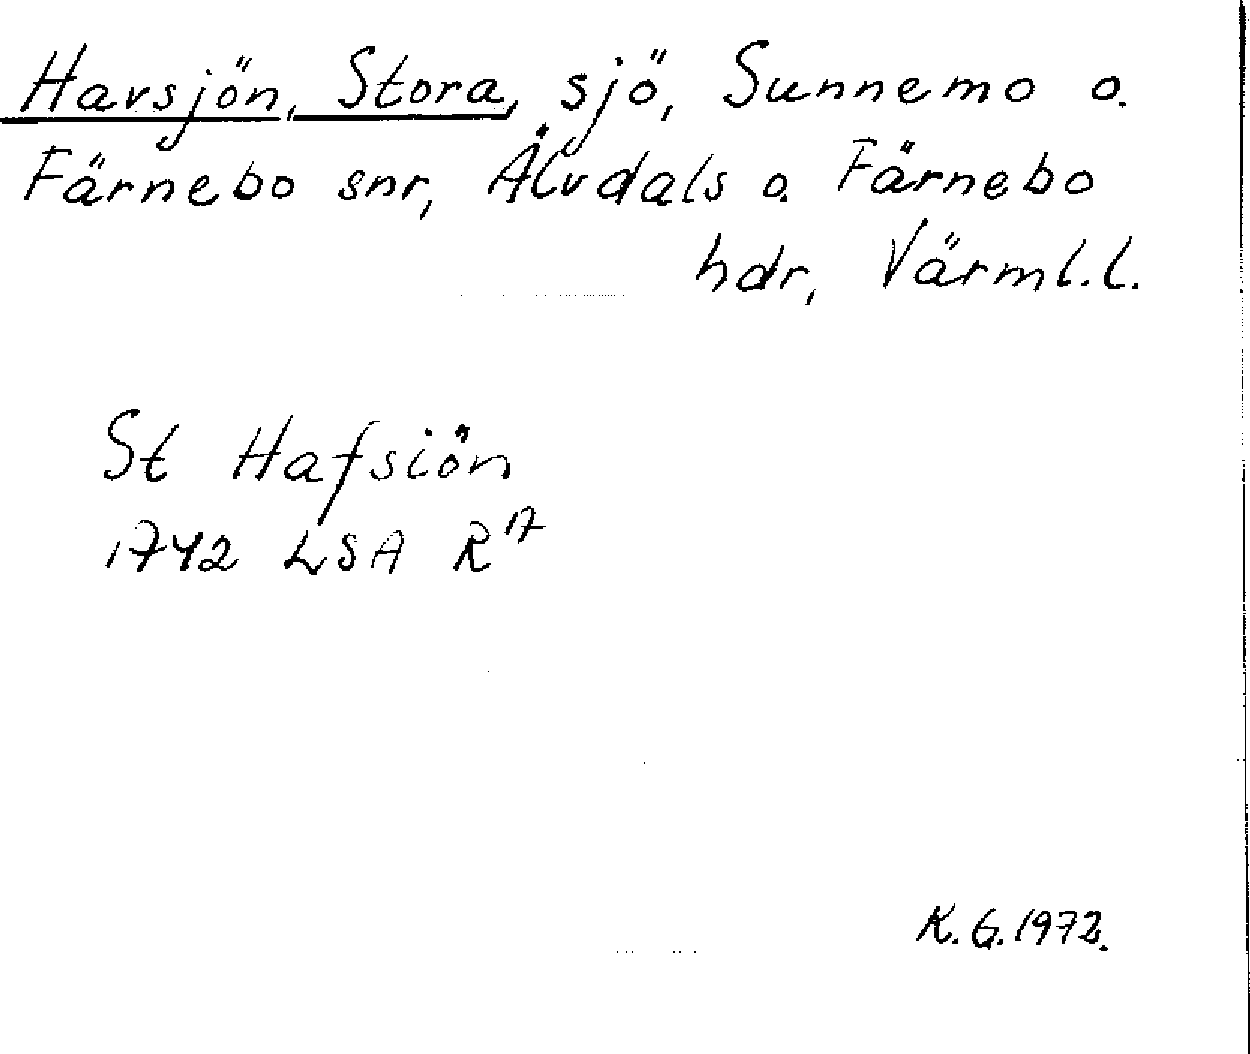 Havsjön, Stora, sjö, Sunnemo o.
Färnebo snr, Älvdals o. Färnebo
hdr, Värml.l.
St Hafsiön
1742 LSA R17
K.G.1972.